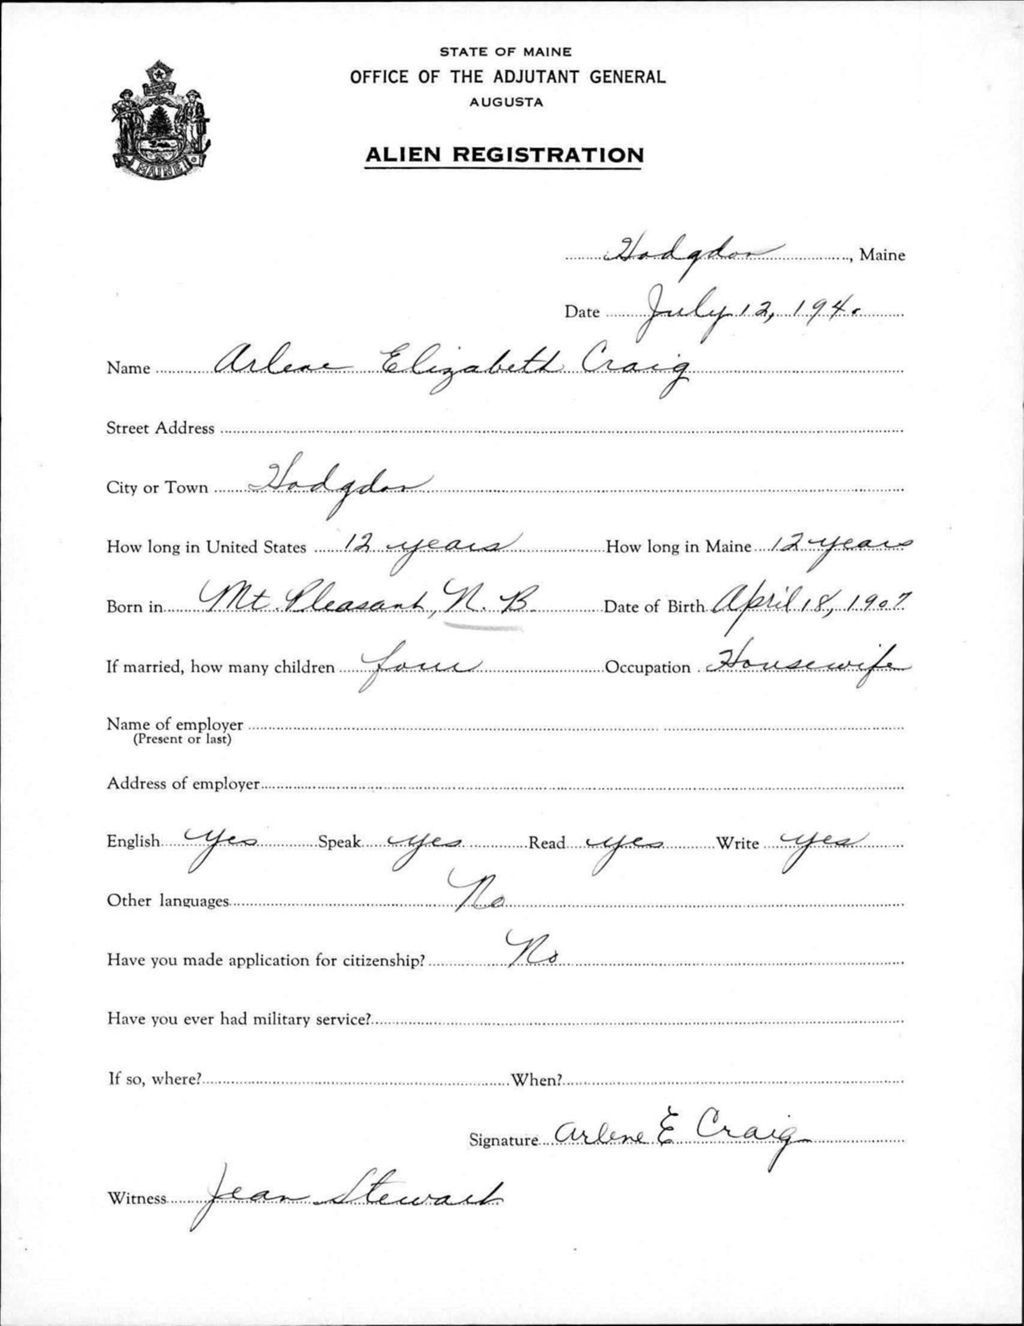 STATE OF MAINE
OFFICE OF THE ADJUTANT GENERAL
AUGUSTA
ALIEN REGISTRATION
MAINE
Hodgdon, Maine
Date July 12, 1940
Name Arlene Elizabeth Craig
Street Address
City or Town Hodgdon
How long in United States 12 years How long in Maine 12 years
Born in Mt. Pleasant, N. B. Date of Birth April 18, 1907
If married, how many children four Occupation Housewife
Name of employer
(Present or last)
Address of employer
English yes Speak yes Read yes Write yes
Other languages No
Have you made application for citizenship? No
Have you ever had military service?
If so, where? When?
Signature Arlene E Craig
Witness Jean Stewart